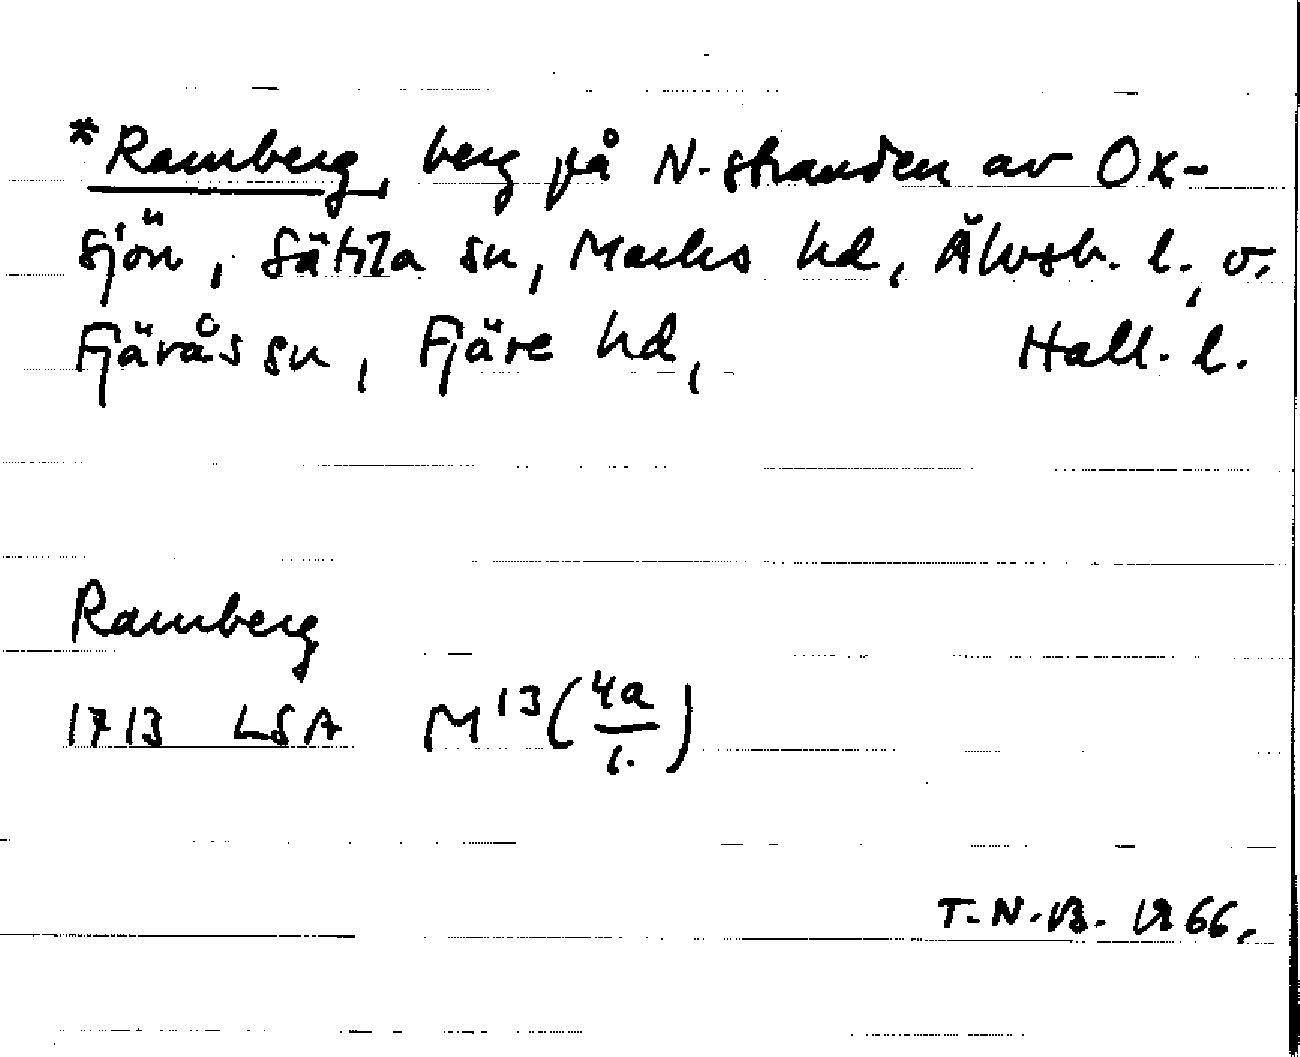 *Ramberg, berg på N-stranden av Ox-
sjön, Sätila sn, Marks hd, Älvsb. l., o.
Fjärås sn, Fjäre hd, Hall. l.
Ramberg
1713 LSA M13(4a/1.)
T.N.B. 1966.